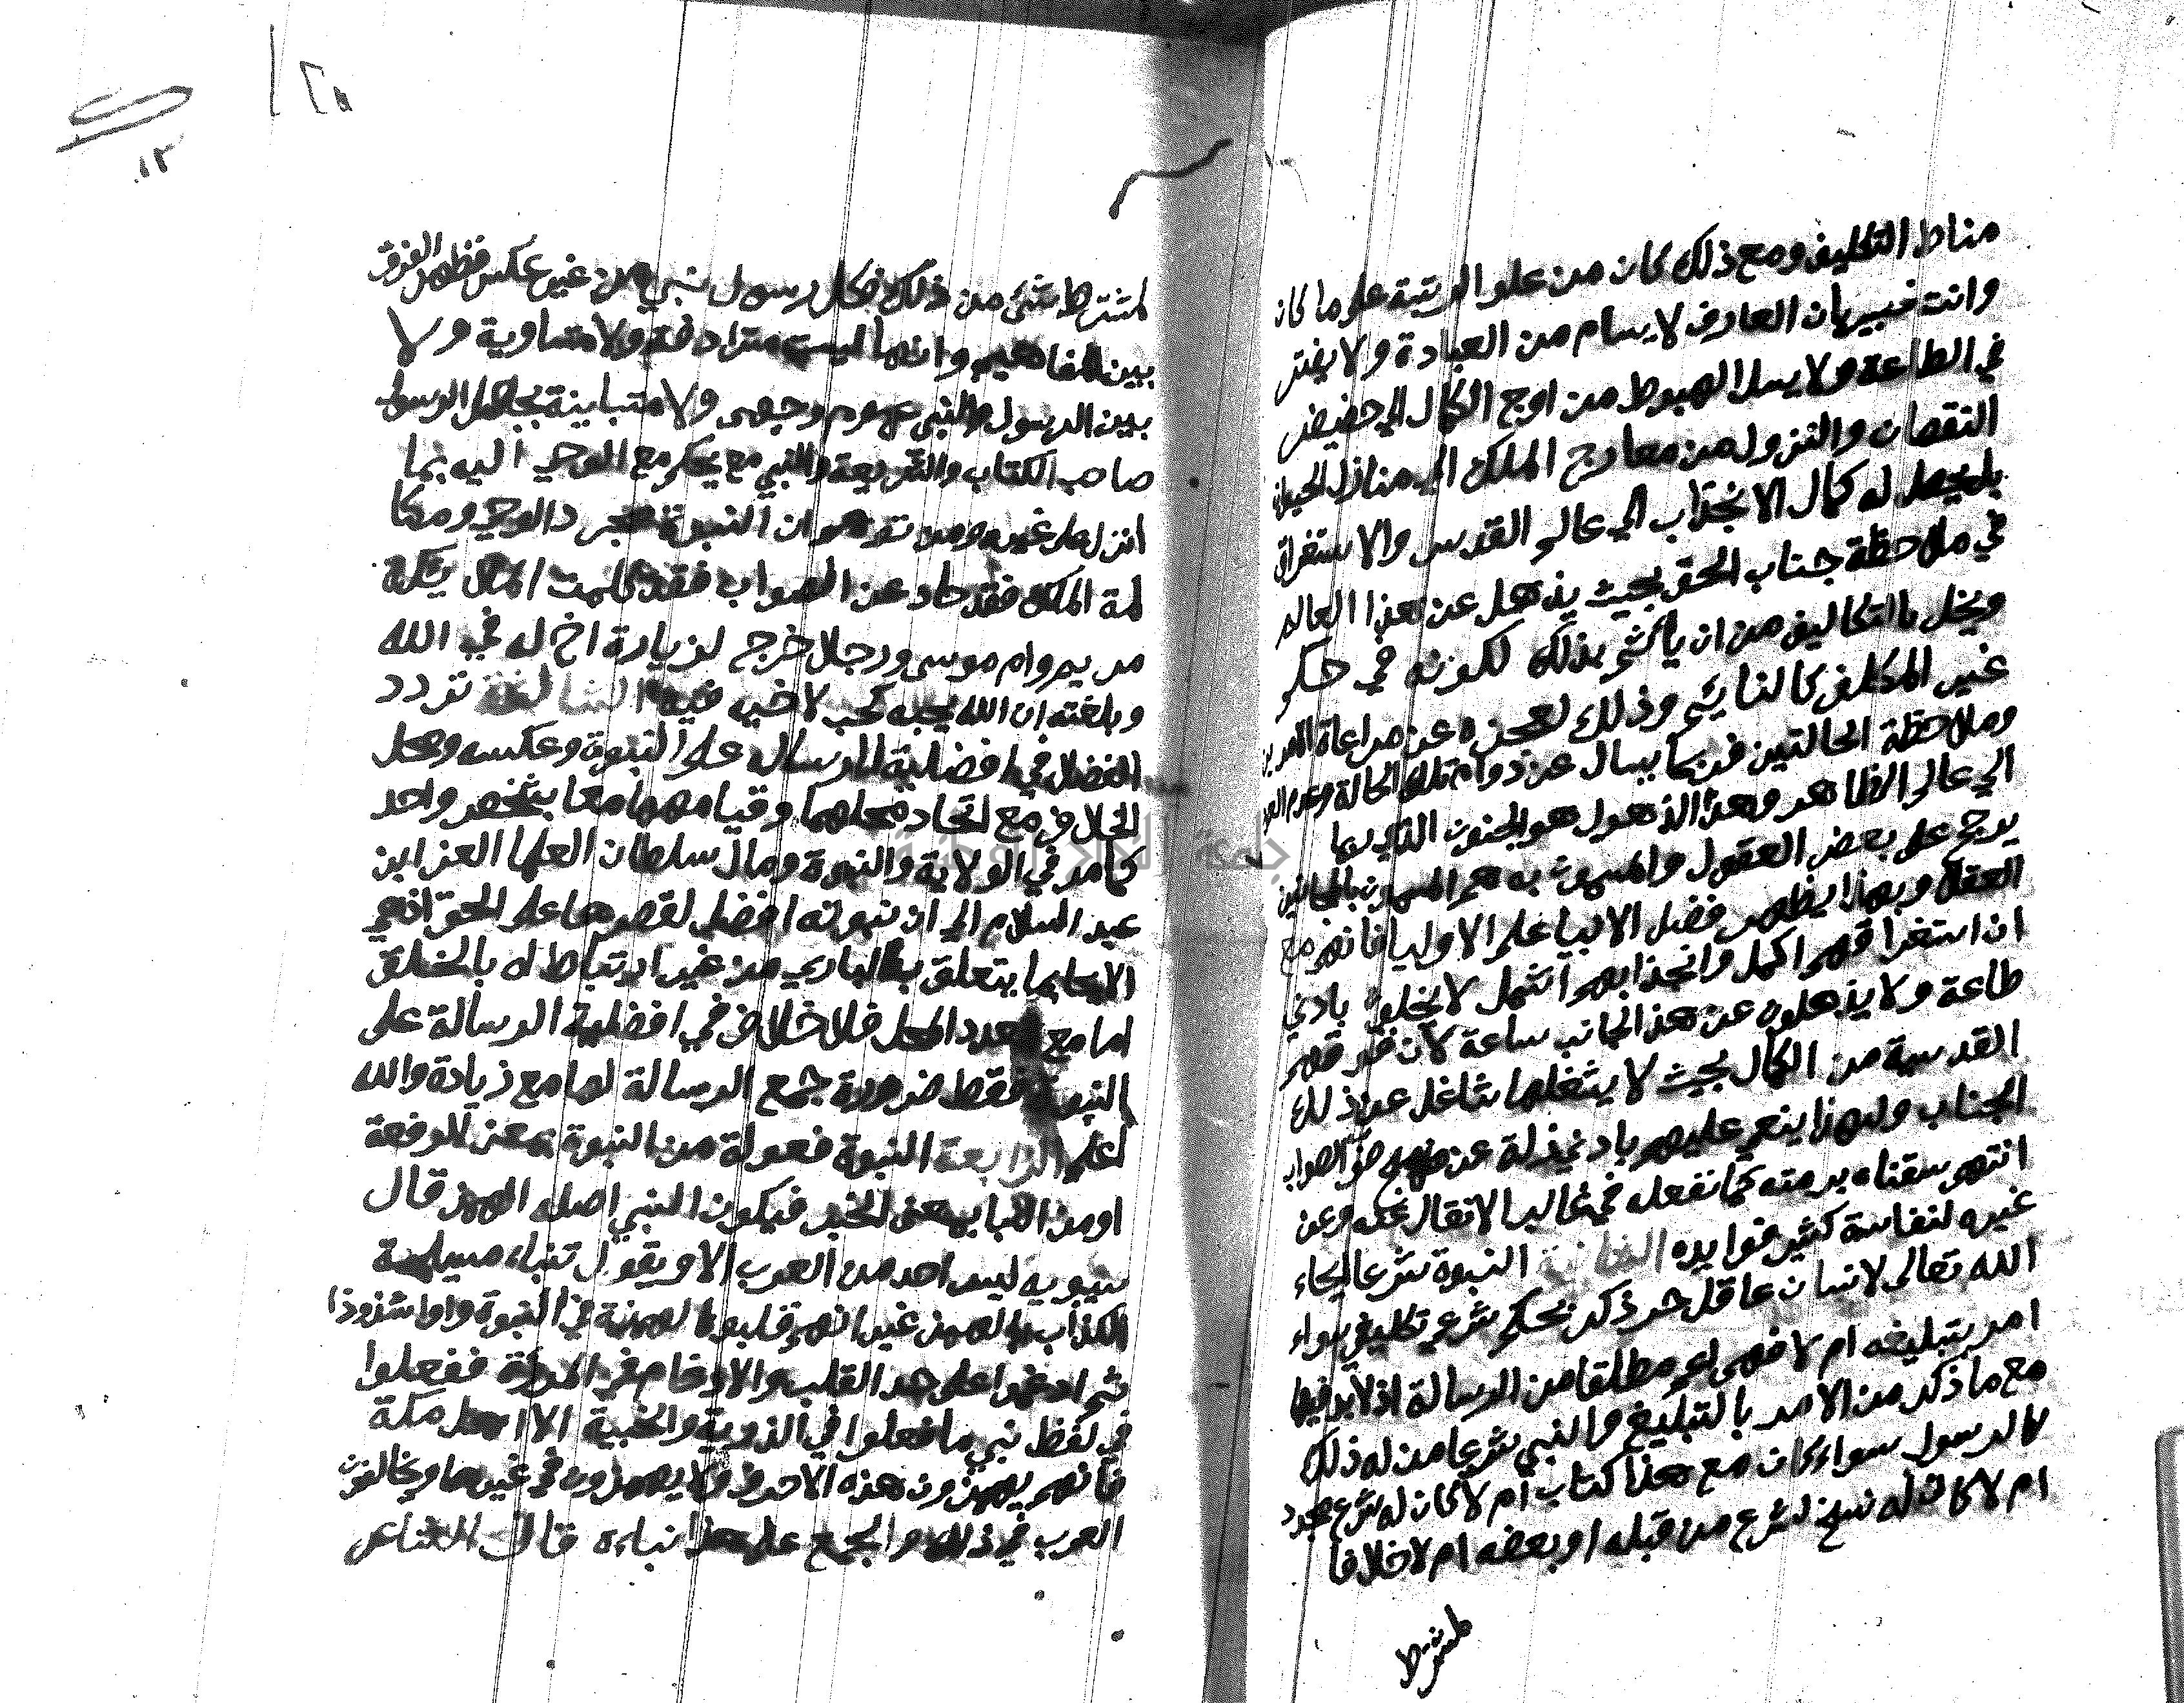 مناط التكليف ومع ذلك كان من علو الرتبة علو ما كان
وانت خبير بان العارف لا يسام من العبادة ولا يفتر
في الطاعة ولا يسل الهبوط من اوج الكمال الى حضيض
النقصان والنزول من معارج الملك الى منازل الحيوان
بل يحصل له كمال الانجذاب الى عالم القدس والاستغراق
في ملاحظة جناب الحق بحيث يذهل عن هذا العالم
ويخل بالتكاليف من ان يأثم بذلك لكونه في حكم
غير المكلف كالنايم وذلك لعجزه عن مراعاة الامرين
وملاحظة الحالتين فربما يسال عن دوام تلك الحالة وعدم العود
الى عالم الظاهر وهذا الذهول هو الجنون الذي ربما
يرجح على بعض العقول والمسمون به هم المسمون بالمجانين
العقلا وبهذا يظهر فضل الانبيا على الاوليا فانهم مع
ان استغراقهم اكمل وانجذابهم اشمل لا يخلون بادني
طاعة ولا يذهلون عن هذا الجانب ساعة لان قوتهم
القدسية من الكمال بحيث لا يشغلها شاغل عن ذلك
الجناب ولهذا ينعي عليهم بادني زلة عن منهج الصواب
انتهى سقناه برمته كما نفعله في غالب الانقال عنه وعن
غيره لنفاسة كثير فوايده الثانية النبوة شرعا ايحاء
الله تعالى لانسان عاقل حر ذكر بحكم شرعي تكليفي سواء
امر بتبليغه ام لا فهى اعم مطلقا من الرسالة اذ لابد فيها
مع ما ذكر من الامر بالتبليغ والنبي شرعا من له ذلك
كالرسول سواء كان مع هذا كتاب ام لا كان له شرع مجدد
ام لا كان له نسخ لشرع من قبله او بعضه ام لا خلافا
لمشترط
١٢٨
١٣
لمشترط شئ من ذلك فكل رسول نبي من غير عكس فظهر الفرق
بين المفاهيم وانها ليست مترادفة ولا متساوية ولا
بين الرسول والنبي عموم وجهى ولا متباينة بجعل الرسول
صاحب الكتاب والشريعة والنبي مع يحكم مع الموحى اليه بما
انزل على غيره ومن توهم ان النبوة مجرد الوحي ومكا
لمة الملك فقد حاد عن الصواب فقد كلمت الملائكة
مريم وام موسى ورجلا خرج لزيارة اخ له في الله
وبلغته ان الله يحبه كحبه لاخيه فيه الثالثة تردد
الفضلا في افضلية الرسالة على النبوة وعكسه ومحل
الخلاف مع اتحاد محلهما وقيامهما معا بشخص واحد
كما مر في الولاية والنبوة ومال سلطان العلما العز ابن
عبد السلام الى ان نبوته افضل لقصرها على الحق اذ هي
الايحا بما يتعلق بالباري من غير ارتباط له بالخلق
اما مع تعدد المحل فلا خلاف في افضلية الرسالة على
النبوة فقط ضرورة جمع الرسالة لها مع زيادة والله
اعلم الرابعة النبوة فعولة من النبوة بمعنى الرفعة
او من النبا بمعنى الخبر فيكون النبي اصله الهمز قال
سيبويه ليس احد من العرب الا ويقول تنباء مسيلمة
الكذاب بالهمز غير انهم قلبوا الهمزة في النبوة واوا شذوذا
ثم ادغموا على حد القلب والادغام في المروة ففعلوا
في لفظ نبي ما فعلوا في الذرية والخبية الا اهل مكة
فانهم يهمزون هذه الاحرف ولا يهمزون في غيرها ويخالفون
العرب في ذلك والجمع على هذا نباءه قال الشاعر